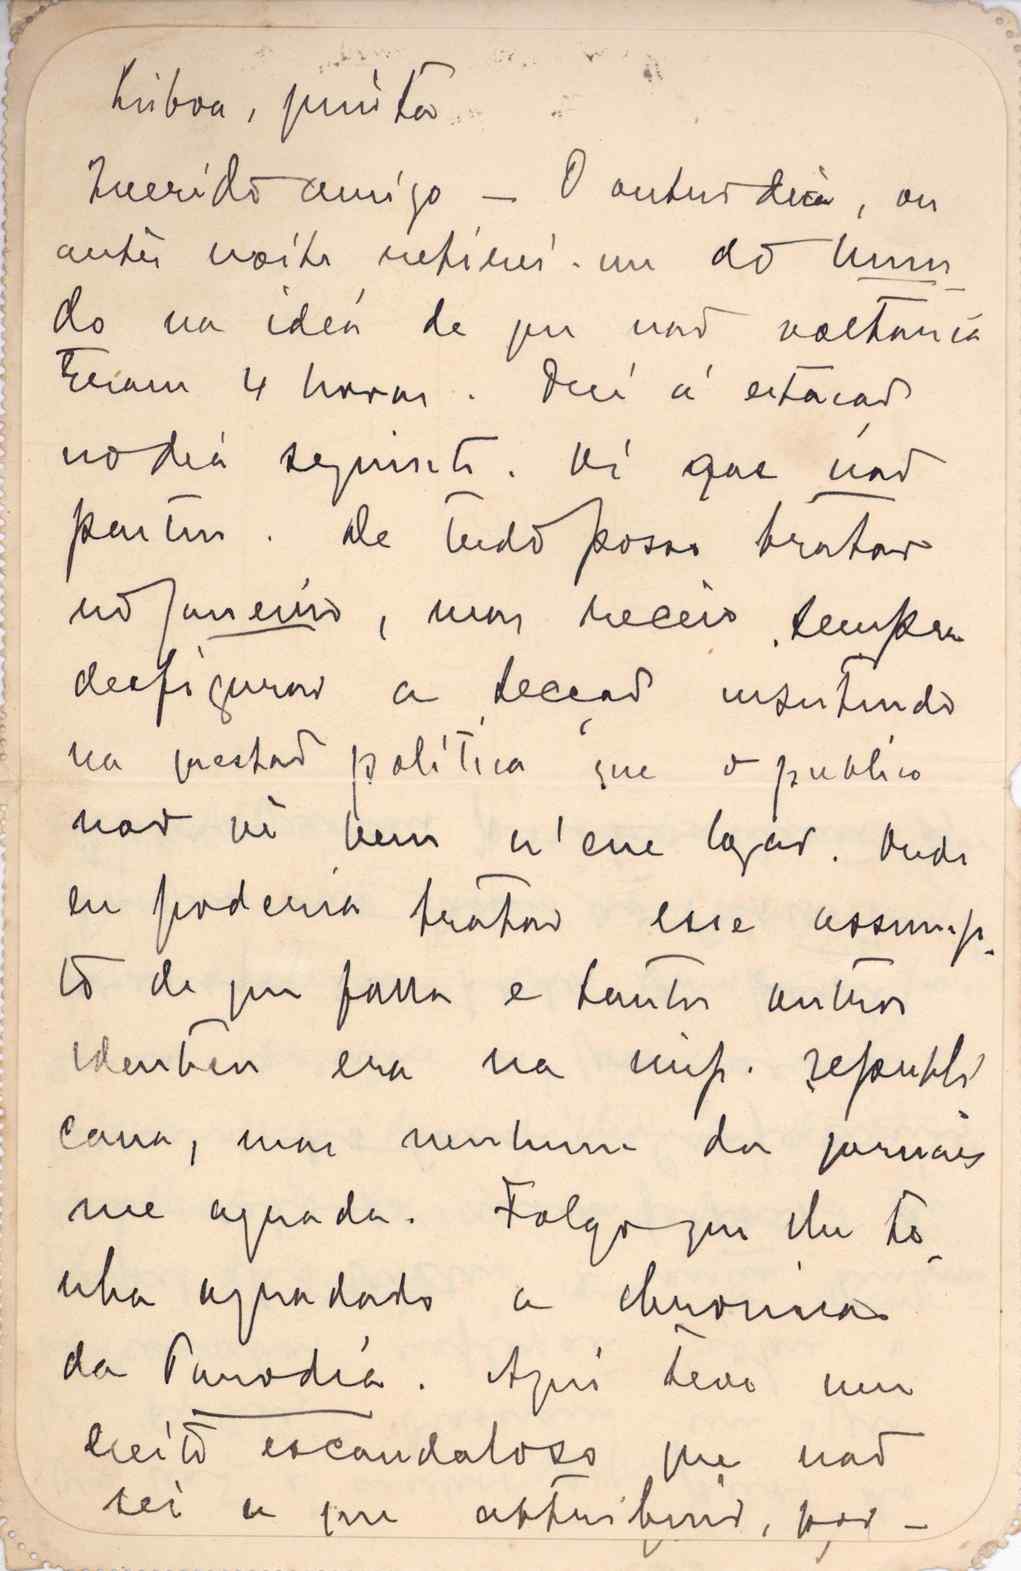 Lisboa, quinta
Querido amigo — O outro dia, ou
antes noite retirei-me do Mun-
do na idea de que não voltaria
4 horas. Fui á estação
no dia seguinte. Vi que não
partiu. De tudo posso tratar
no Janeiro, mas receio sempre
desfigurar a secção insistindo
na questão politica que o publico
não vê bem n'esse logar. Onde
eu poderia tratar esse assump-
to de que falla e tantos outros
identicos era na imp. republi
cana, mas nenhum dos jornaes
me agrada. Folgo que lhe te-
nha agradado a chronica
da Parodia. Aqui teve um
exito escandaloso que não
sei a que attribuir, por-